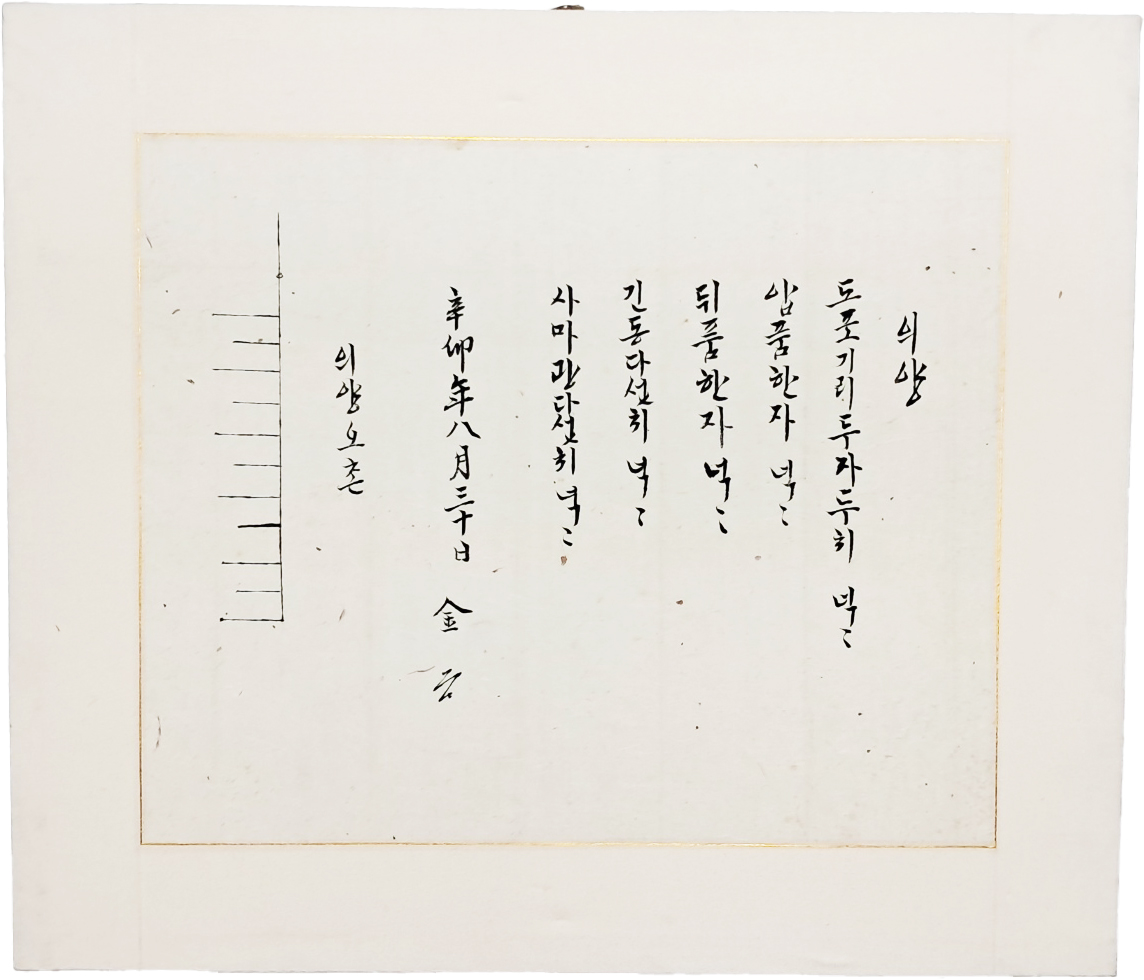 의양
도포기리두자두치 넉〻
압품한자 넉〻
뒤품한자 넉〻
긴동다섯치 넉〻
사마판다섯치 넉〻
辛卯年八月三十日 金
의양오촌